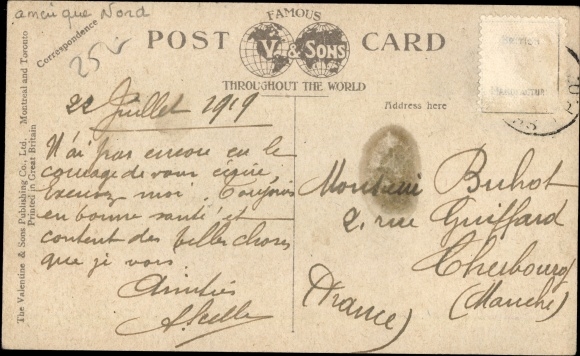 amérique Nord
Correspondence
25
FAMOUS
POST CARD
V. & SONS
THROUGHOUT THE WORLD
Address here
BRITISH
MANUFACTURE
The Valentine & Sons Publishing Co., Ltd. Montreal and Toronto
Printed in Great Britain
22 Juillet 1919
N'ai pas encore eu le
courage de vous écrire,
Excusez moi. Toujours
en bonne santé et
content des belles choses
que je vois
Amitiés
Monsieur Buhot
2, rue Guiffard
Cherbourg
(Manche)
(France)